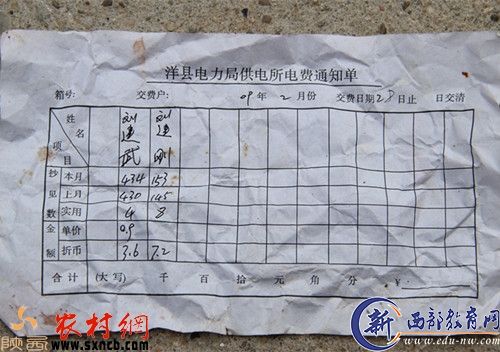 洋县电力局供电所电费通知单
箱号: 交费户: 09年2月份 交费日期28日止 日交清
姓名 刘建武 刘建刚
项目
抄见数 本月 434 153
上月 430 145
实用 4 8
金额 单价 0.9
折币 3.6 7.2
合计 (大写) 千 百 拾 元 角 分 ¥:
陕西
农村網
www.sxncb.com
新 西部教育网
www.edu-nw.com